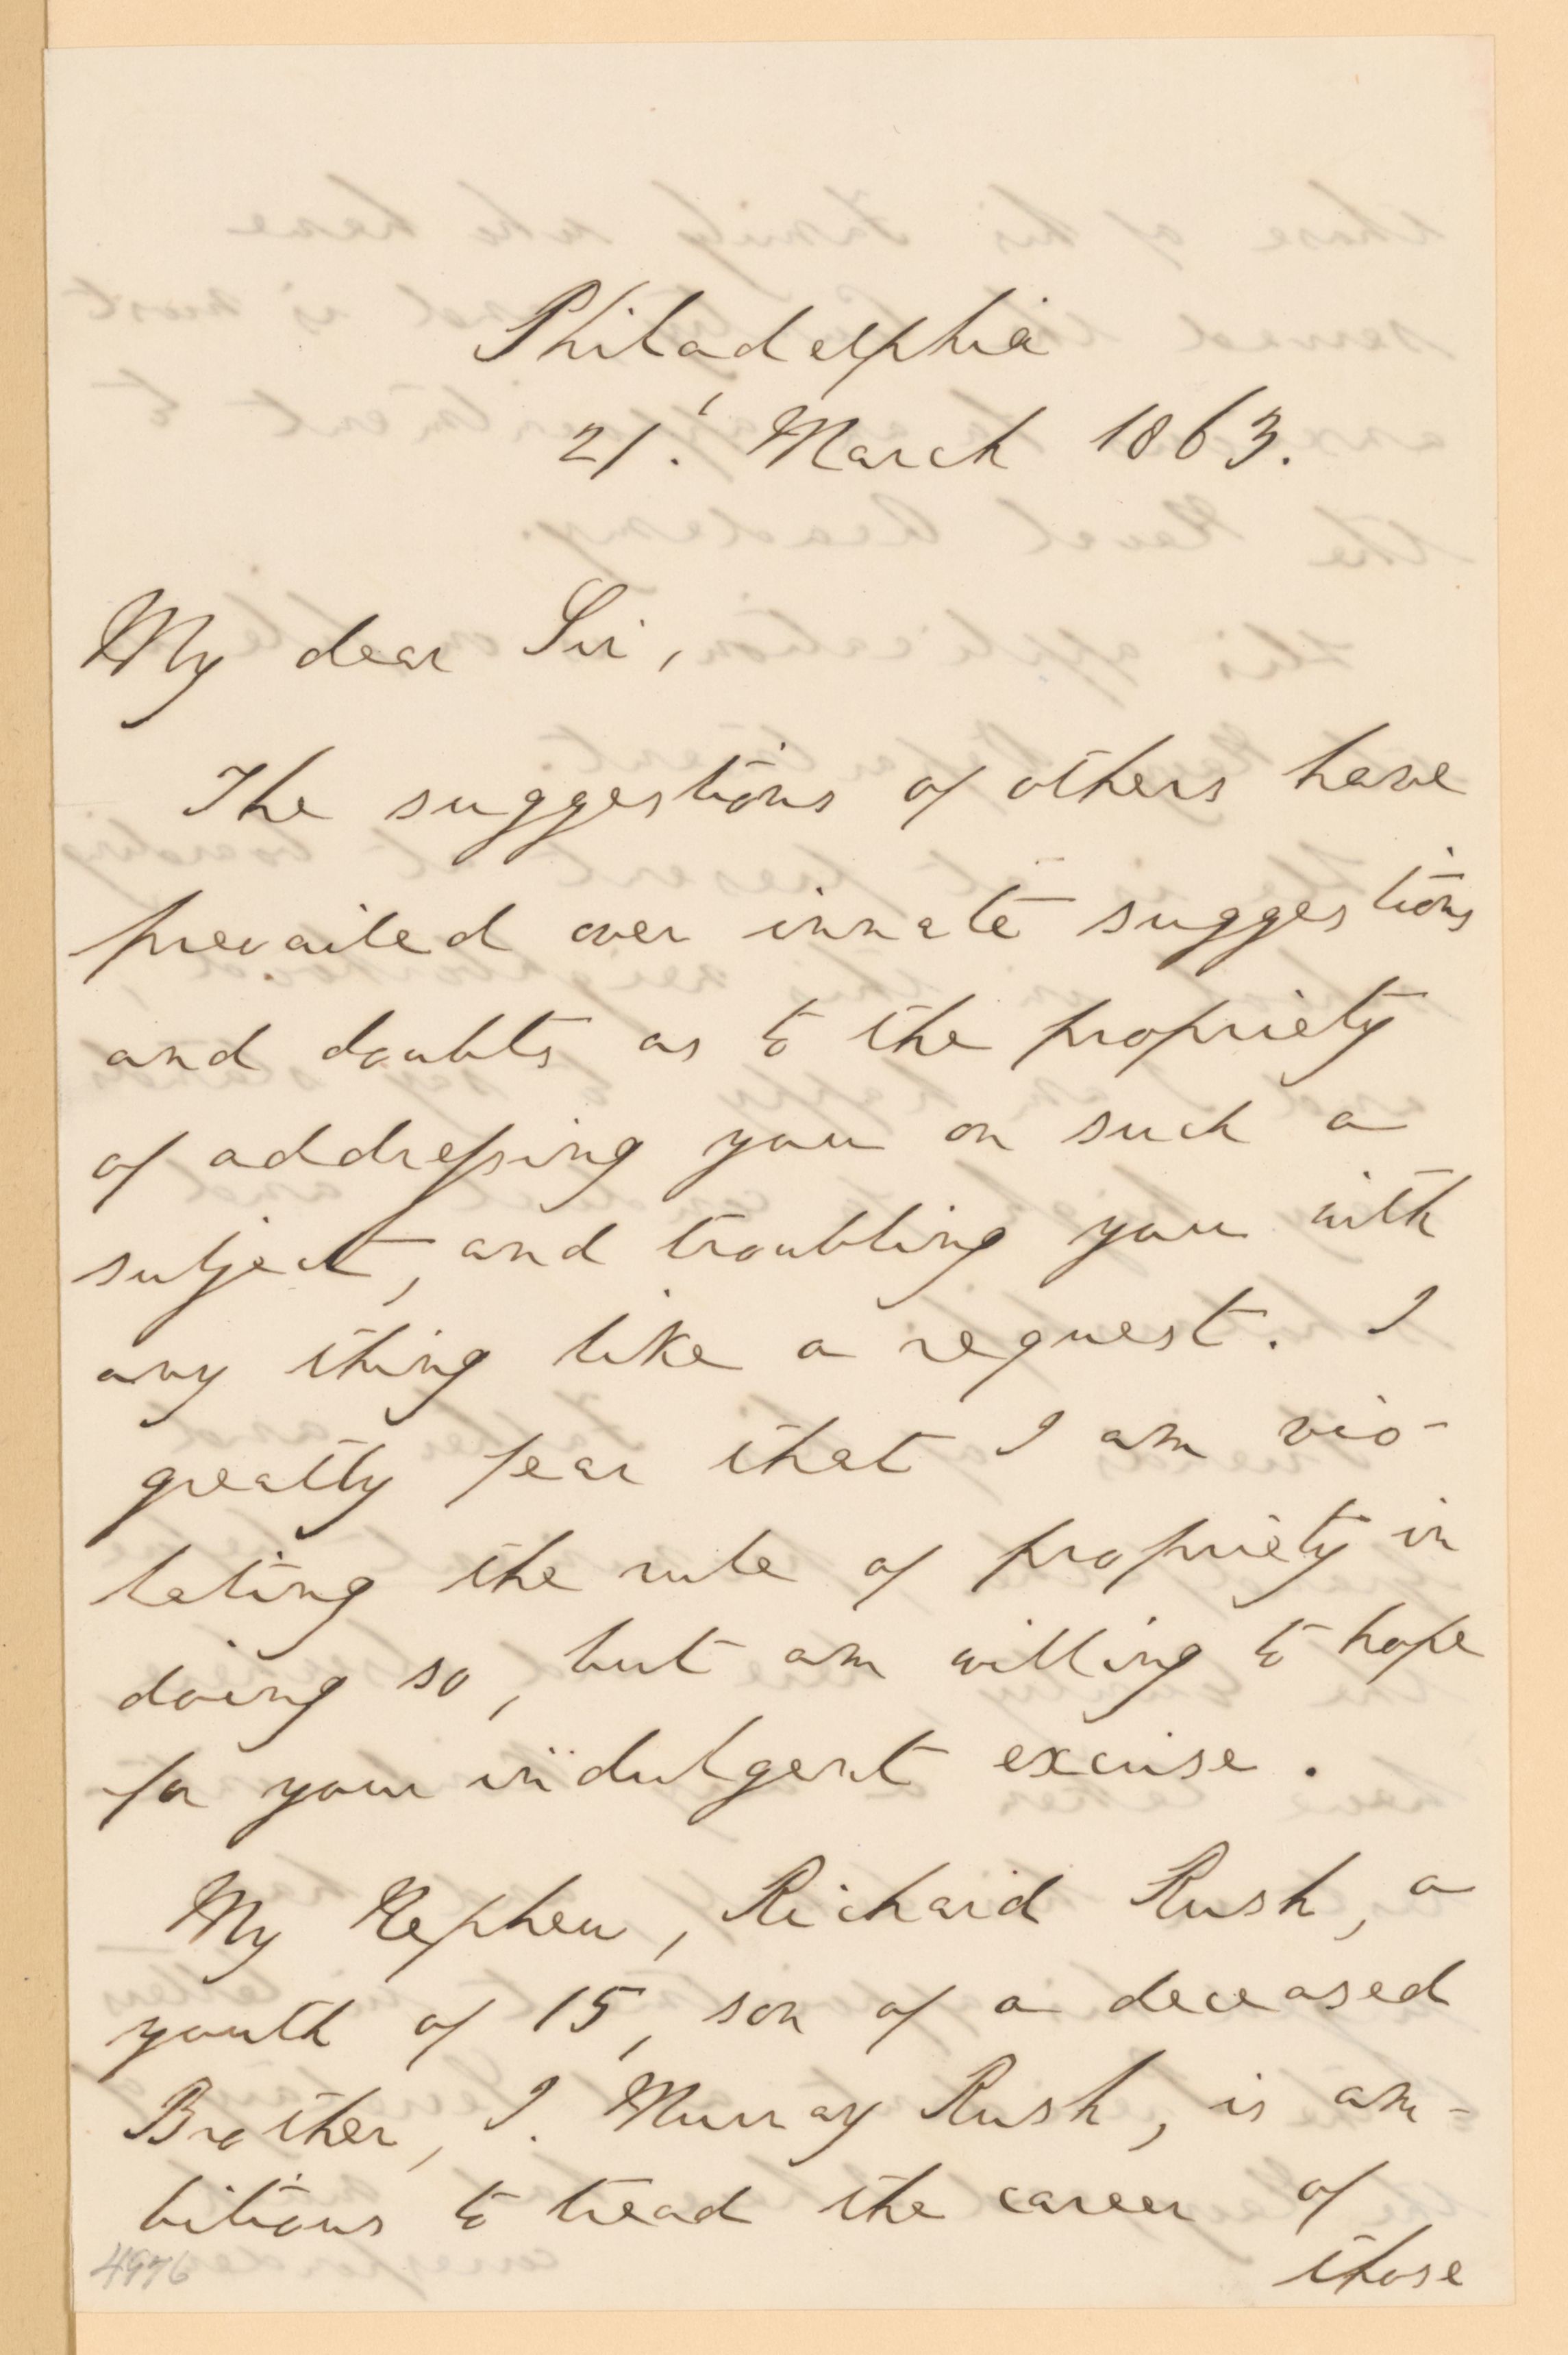 Philadelphia
21. March 1863.
My dear Sir,
The suggestions of others have
prevailed over innate suggestions
and doubts as to the propriety
of addressing you on such a
subject, and troubling you with
any thing like a request. I
greatly fear that I am vio-
lating the rule of propriety in
doing so, but am willing to hope
for your indulgent excuse.
My Nephew, Richard Rush, a
youth of 15, son of a deceased
Brother, J. Murray Rush, is am-
bitious to tread the career of
those
4976